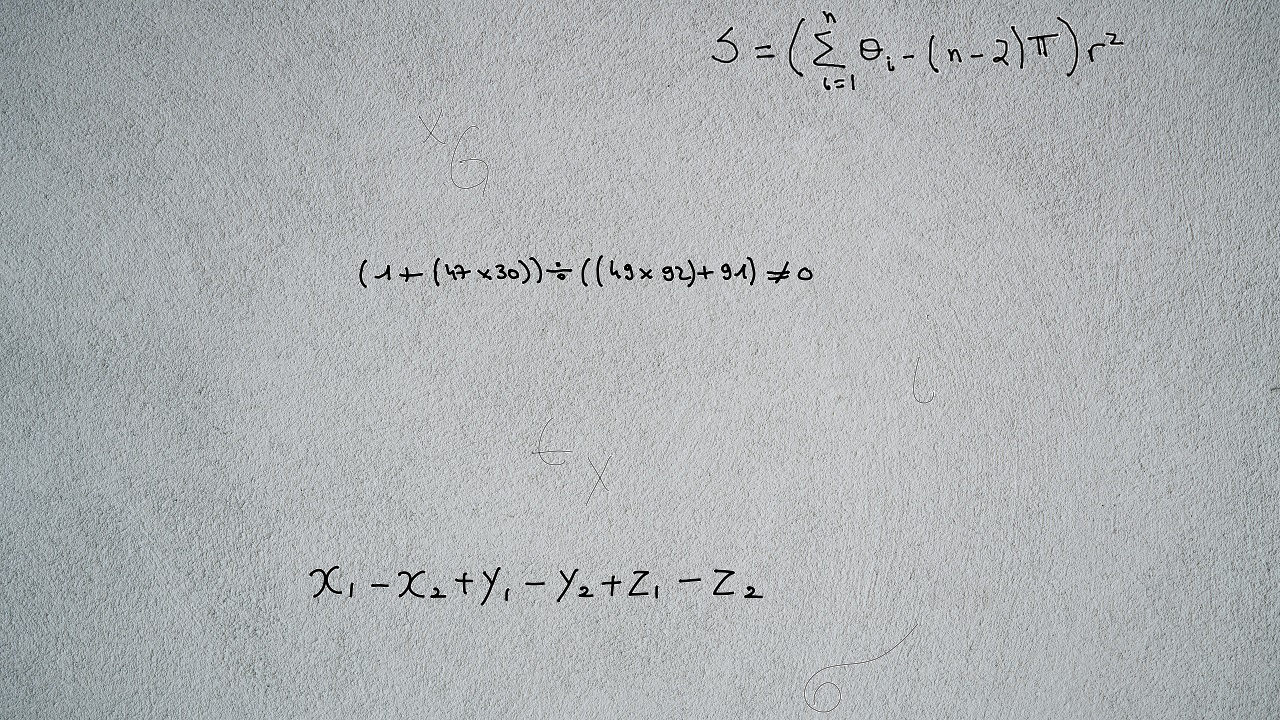 S = (∑_{i=1}^{n} θ_i - (n-2)π)r²
(1+(47×30))÷((49×92)+91)≠0
x₁-x₂+y₁-y₂+z₁-z₂